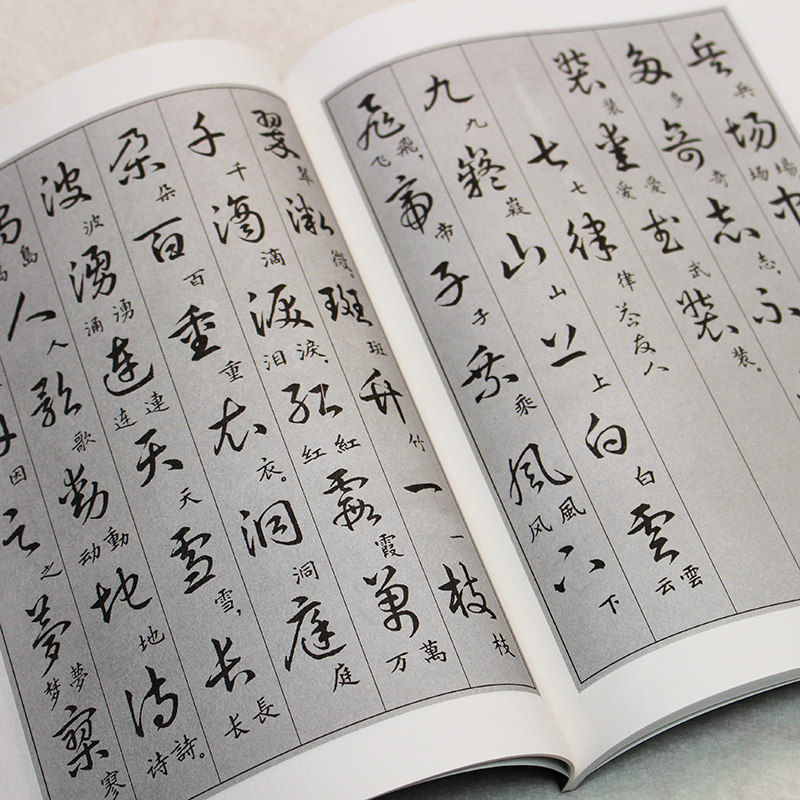 兵场
兵場场
多奇志不
多奇志，
装爱武装
装愛爱武装。
七律 答友人
七律
九嶷山上白雲
九嶷山上白雲云
飛帝子乘風下
飛飞，帝子乘風风下
翠微斑竹一枝
翠微，斑竹一枝
千滴淚紅霞萬
千滴淚泪，紅红霞萬万
朵百重衣洞庭
朵百重衣。洞庭
波湧連天雪長
波湧涌連连天雪，長长
島人歌動地詩
島岛人歌動动地詩诗。
因之夢寥
因之夢梦寥